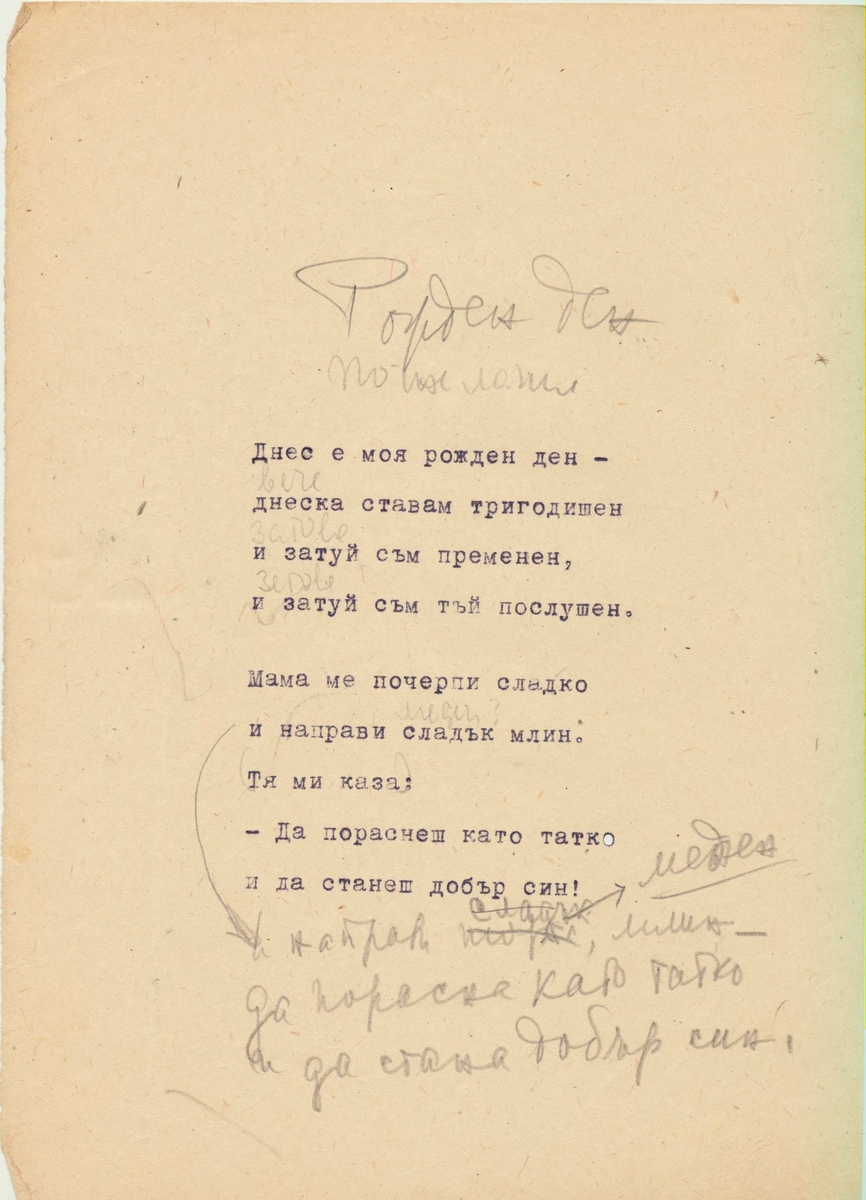 Рожден ден
Днес е моя рожден ден -
вече
днеска ставам тригодишен
затова
и затуй съм пременен,
затова
и затуй съм тъй послушен.
Мама ме почерпи сладко
меден?
и направи сладък млин.
Тя ми каза:
- Да пораснеш като татко
и да станеш добър син!
меден
сладък
и направи, млин -
да порасна като татко
и да стана добър син.